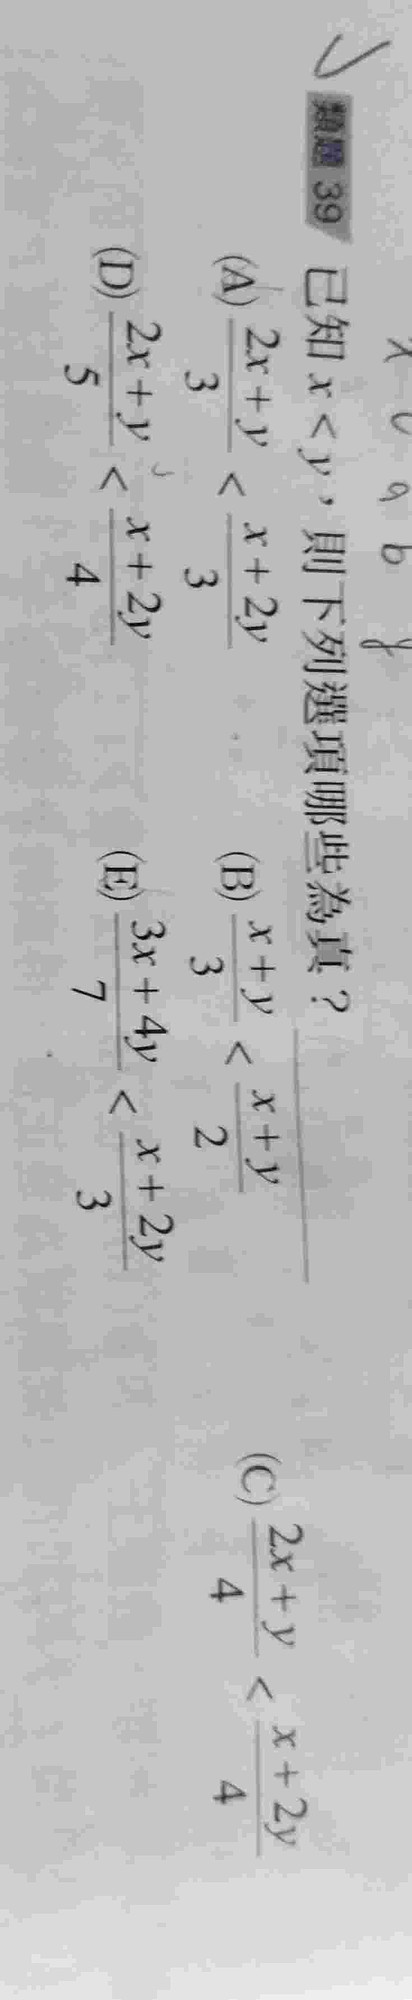 x a b y
類題 39 已知 x < y，則下列選項哪些為真？
(A) \frac{2x+y}{3} < \frac{x+2y}{3} (B) \frac{x+y}{3} < \frac{x+y}{2} (C) \frac{2x+y}{4} < \frac{x+2y}{4}
(D) \frac{2x+y}{5} < \frac{x+2y}{4} (E) \frac{3x+4y}{7} < \frac{x+2y}{3}